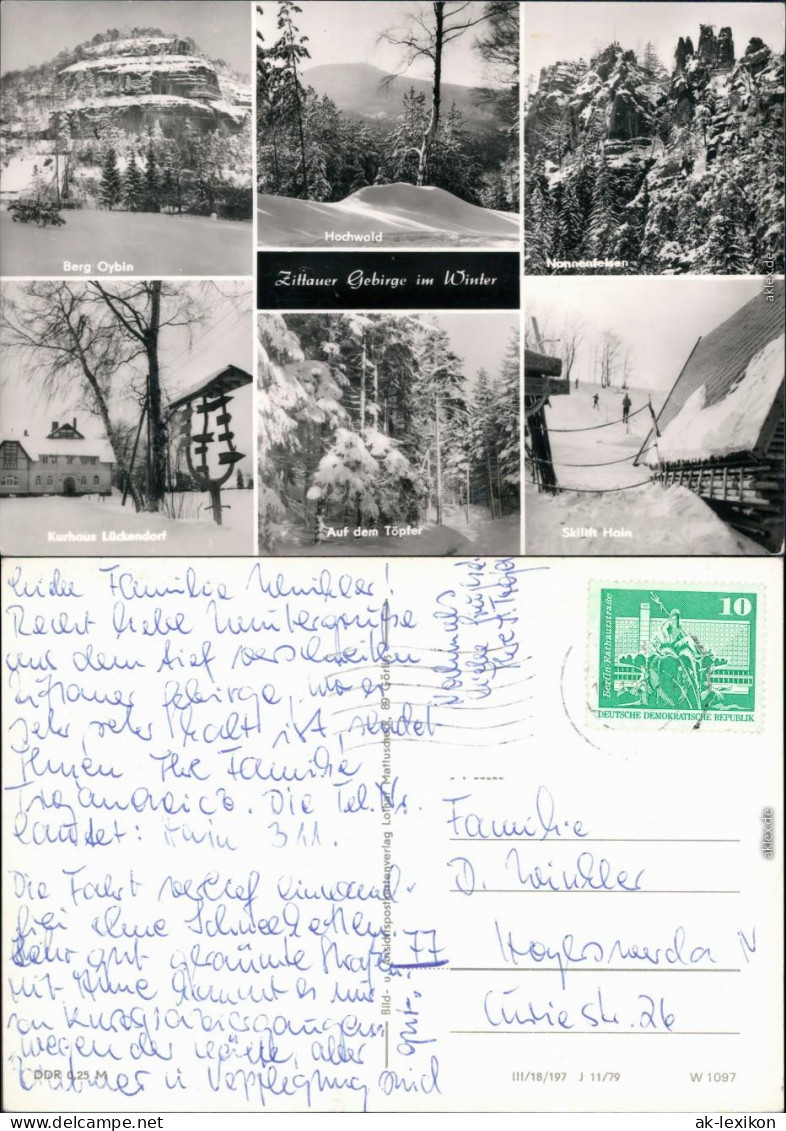 Berg Oybin
Hochwald
Nonnenfelsen
Zittauer Gebirge im Winter
Kurhaus Lückendorf
Auf dem Töpfer
Skilift Hain
aklex.de
Liebe Familie Winkler!
Recht liebe Wintergrüße
aus dem tief verschneiten
Zittauer Gebirge, wo es
sehr, sehr kalt ist, sendet
Ihnen Ihre Familie
Die Tel. Nr.
lautet: Hain 311.
Die Fahrt verlief einwand-
frei ohne Schneeketten.
Sehr gut geräumte Straße
mit kommt es nur
zu Kurzspaziergängen,
wegen der Kälte, aber
Zimmer u. Verpflegung sind
gut.
Nochmals
liebe Grüße
Ihre
Bild- u. Ansichtspostkartenverlag Lothar Mattuschek, 89 Görlitz
10
Berlin-Rathausstraße
DEUTSCHE DEMOKRATISCHE REPUBLIK
Familie
D. Winkler
77 Hoyerswerda
Curiestr. 26
aklex.de
DDR 0,25 M
III/18/197 J 11/79
W 1097
ak-lexikon
ak-lexikon.com